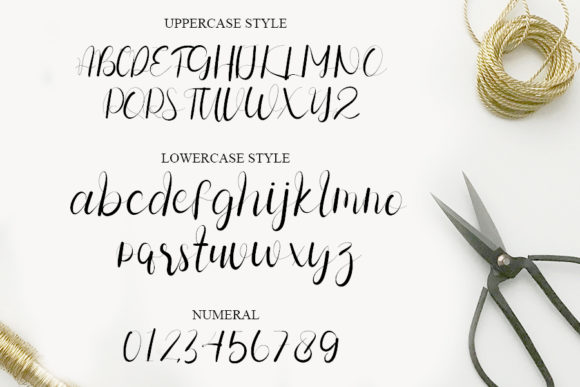 UPPERCASE STYLE
ABCDEFGHIJKLMNO
PQRSTUVWXYZ
LOWERCASE STYLE
abcdefghijklmno
pqrstuvwxyz
NUMERAL
0123456789